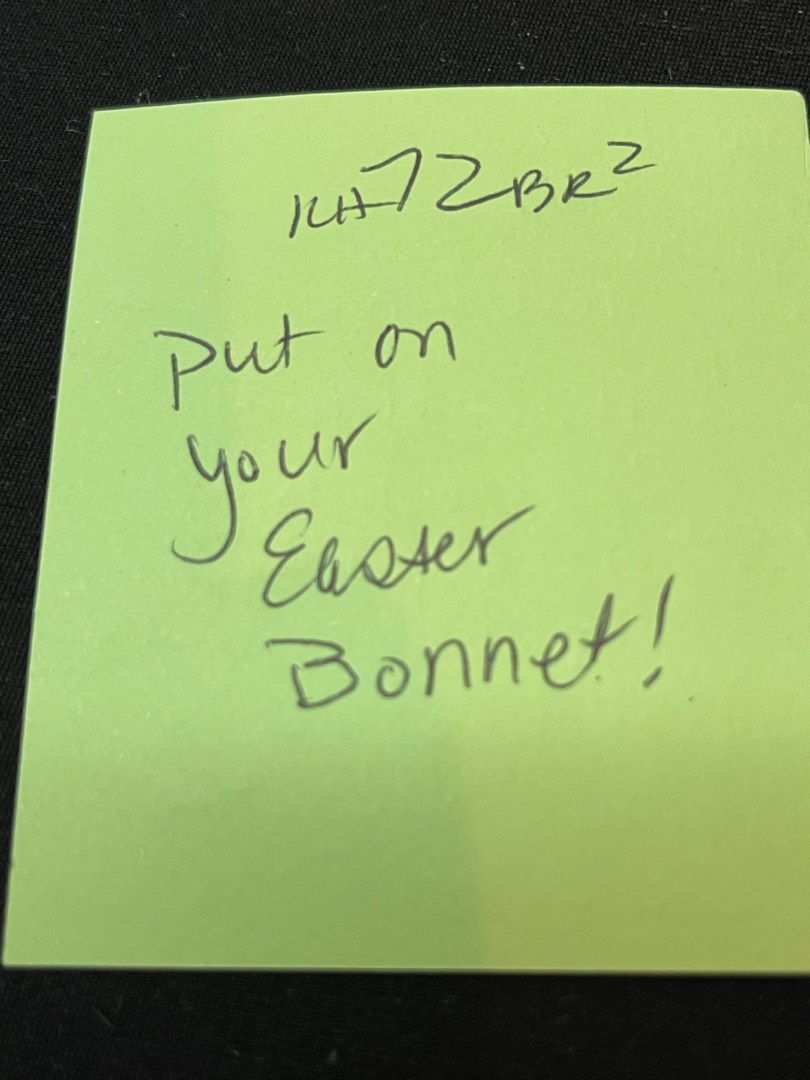 KH72BR²
Put on
your
Easter
Bonnet!